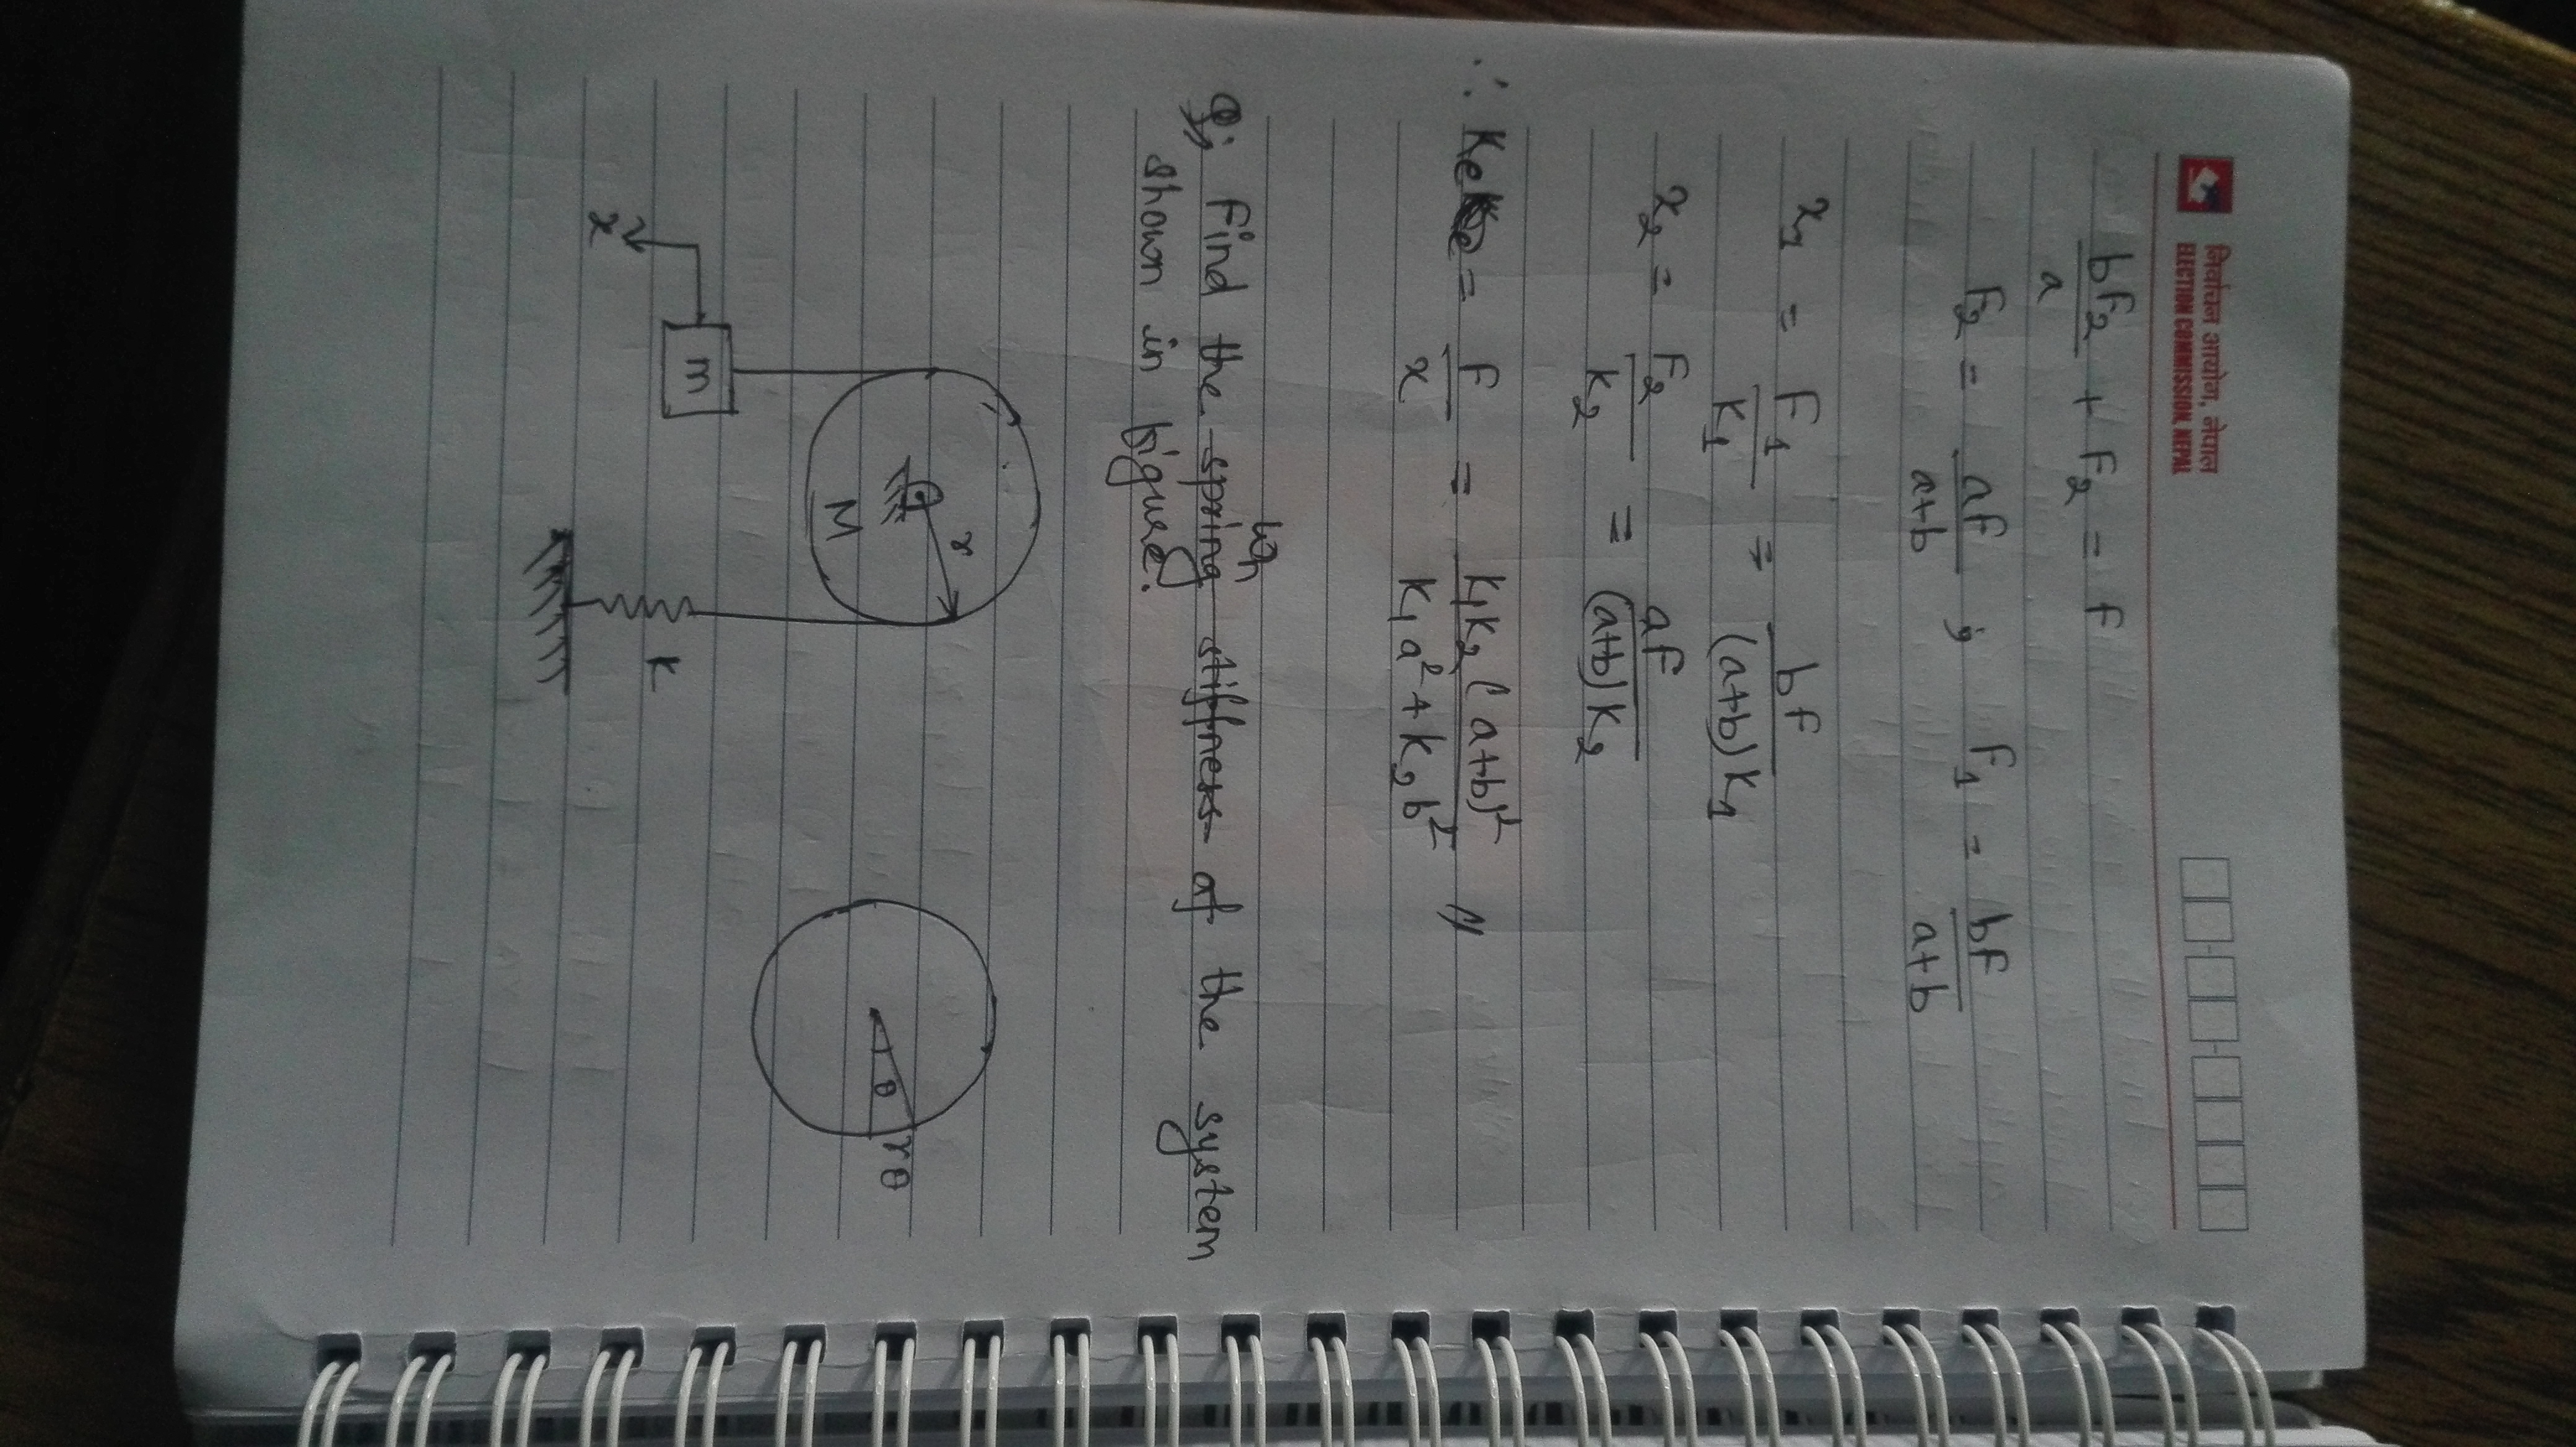 निर्वाचन आयोग, नेपाल
ELECTION COMMISSION, NEPAL
bF2/a + F2 = F
F2 = aF/a+b ; F1 = bF/a+b
x1 = F1/K1 = bF/(a+b)K1
x2 = F2/K2 = aF/(a+b)K2
∴ Ke = F/x = K1K2(a+b)²/K1a²+K2b² //
ωn
Q; Find the spring stiffness of the system
shown in figure.
r
θ
rθ
M
m
K
x